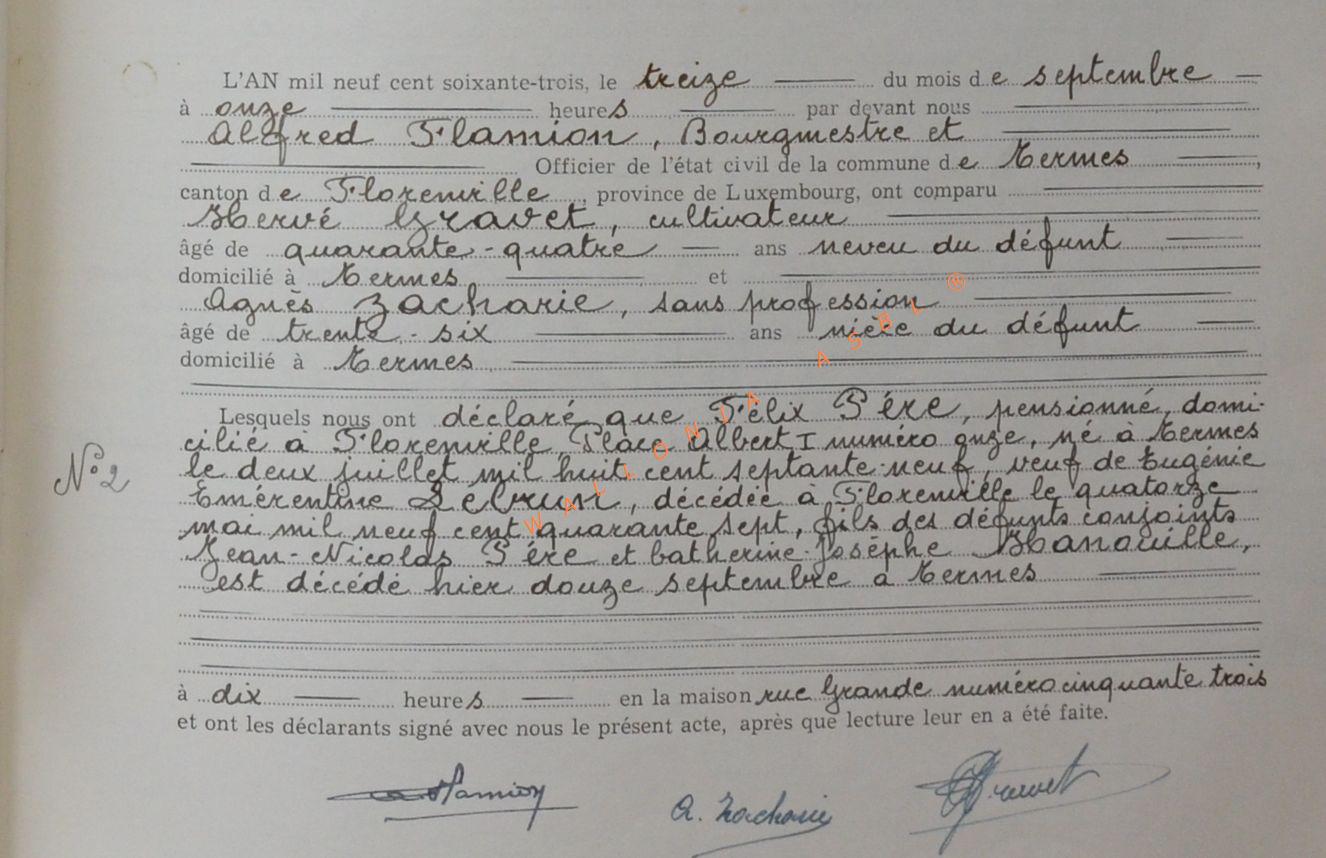 L'AN mil neuf cent soixante-trois, le treize du mois de septembre
à onze heures par devant nous
Alfred Flamion, Bourgmestre et
Officier de l'état civil de la commune de Termes,
canton de Florenville, province de Luxembourg, ont comparu
Hervé Gravet, cultivateur
âgé de quarante-quatre ans neveu du défunt
domicilié à Termes et
Agnès Zacharie, sans profession
âgé de trente-six ans nièce du défunt
domicilié à Termes
Lesquels nous ont déclaré que Félix Père, pensionné, domi-
cilié à Florenville Place Albert I numéro onze, né à Termes
N° 2
le deux juillet mil huit cent septante-neuf, veuf de Eugénie
Emérentine Lebrun, décédée à Florenville le quatorze
mai mil neuf cent quarante sept, fils des défunts conjoints
Jean-Nicolas Père et Catherine-Josèphe Hanouille,
est décédé hier douze septembre à Termes
à dix heures en la maison rue Grande numéro cinquante trois
et ont les déclarants signé avec nous le présent acte, après que lecture leur en a été faite.
Flamion
A. Zacharie
Gravet
WALLONIA ASBL ®